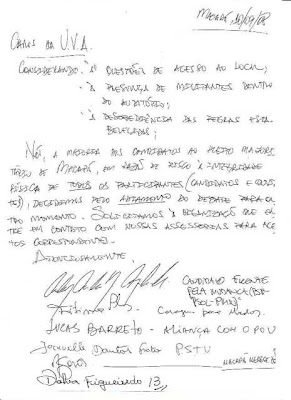 MACAPÁ, 18/09/08
CAROS DA U.V.A.
CONSIDERANDO: * QUESTÕES DE ACESSO AO LOCAL;
* A PRESENÇA DE MILITANTES DENTRO
DO AUDITÓRIO;
* A DESOBEDIÊNCIA DAS REGRAS ESTA-
BELECIDAS;
NÓS, A MAIORIA DOS CANDIDATOS AO PLEITO MAJORI-
TÁRIO DE MACAPÁ, EM RAZÃO DE RISCO À INTEGRIDADE
FÍSICA DE TODOS OS PARTICIPANTES (CANDIDATOS E
DECIDIMOS PELO ADIAMENTO DO DEBATE PARA OU-
TRO MOMENTO. SOLICITAMOS À ORGANIZAÇÃO QUE EN-
TRE EM CONTATO COM NOSSAS ASSESSORIAS PARA ACER-
TOS CORRESPONDENTES.
ATENCIOSAMENTE.
CANDIDATO FRENTE
PELA MUDANÇA (PSB-
PSOL-PMN)
LUCAS BARRETO - ALIANÇA COM O POVO
PSTU
Dalva Figueiredo 13